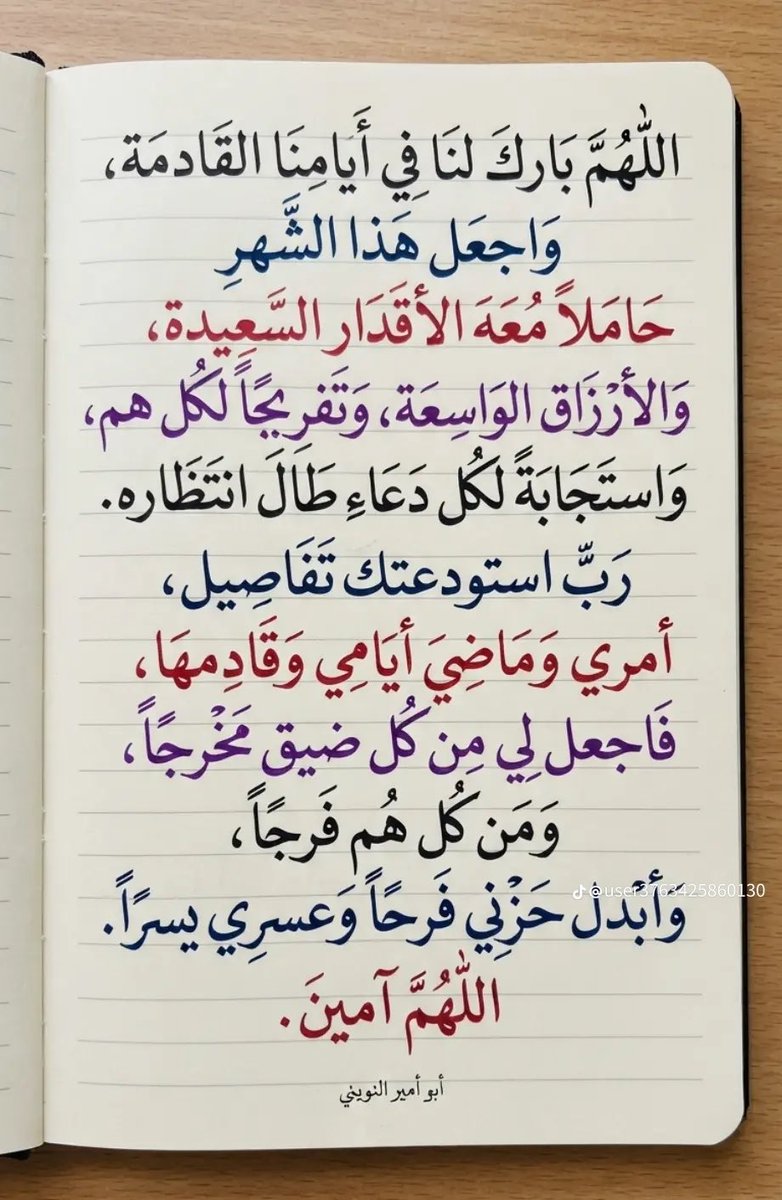 اللّٰهُمَّ بَاركَ لنَا فِي أَيَامِنَا القَادمَة،
وَاجعَل هَذا الشَّهرِ
حَامَلاً مُعَهَ الأقَدَار السَّعِيدة،
وَالأرْزَاق الوَاسِعَة، وَتَفريجًاً لكُل هم،
وَاستَجَابَةً لكُل دَعَاءِ طَالَ انتَظَاره.
رَبّ استودعتك تَفَاصِيل،
أمري وَمَاضِيَ أيَامِي وَقَادِمهَا،
فَاجعل لِي مِن كُل ضيق مَخْرجًاً،
وَمَن كُل هُم فَرجًاً،
وأبْدل حَزْنِي فَرحًاً وَعسرِي يسرًاً.
اللّٰهُمَّ آمينَ.
أبو أمير النويني
@user3763425860130